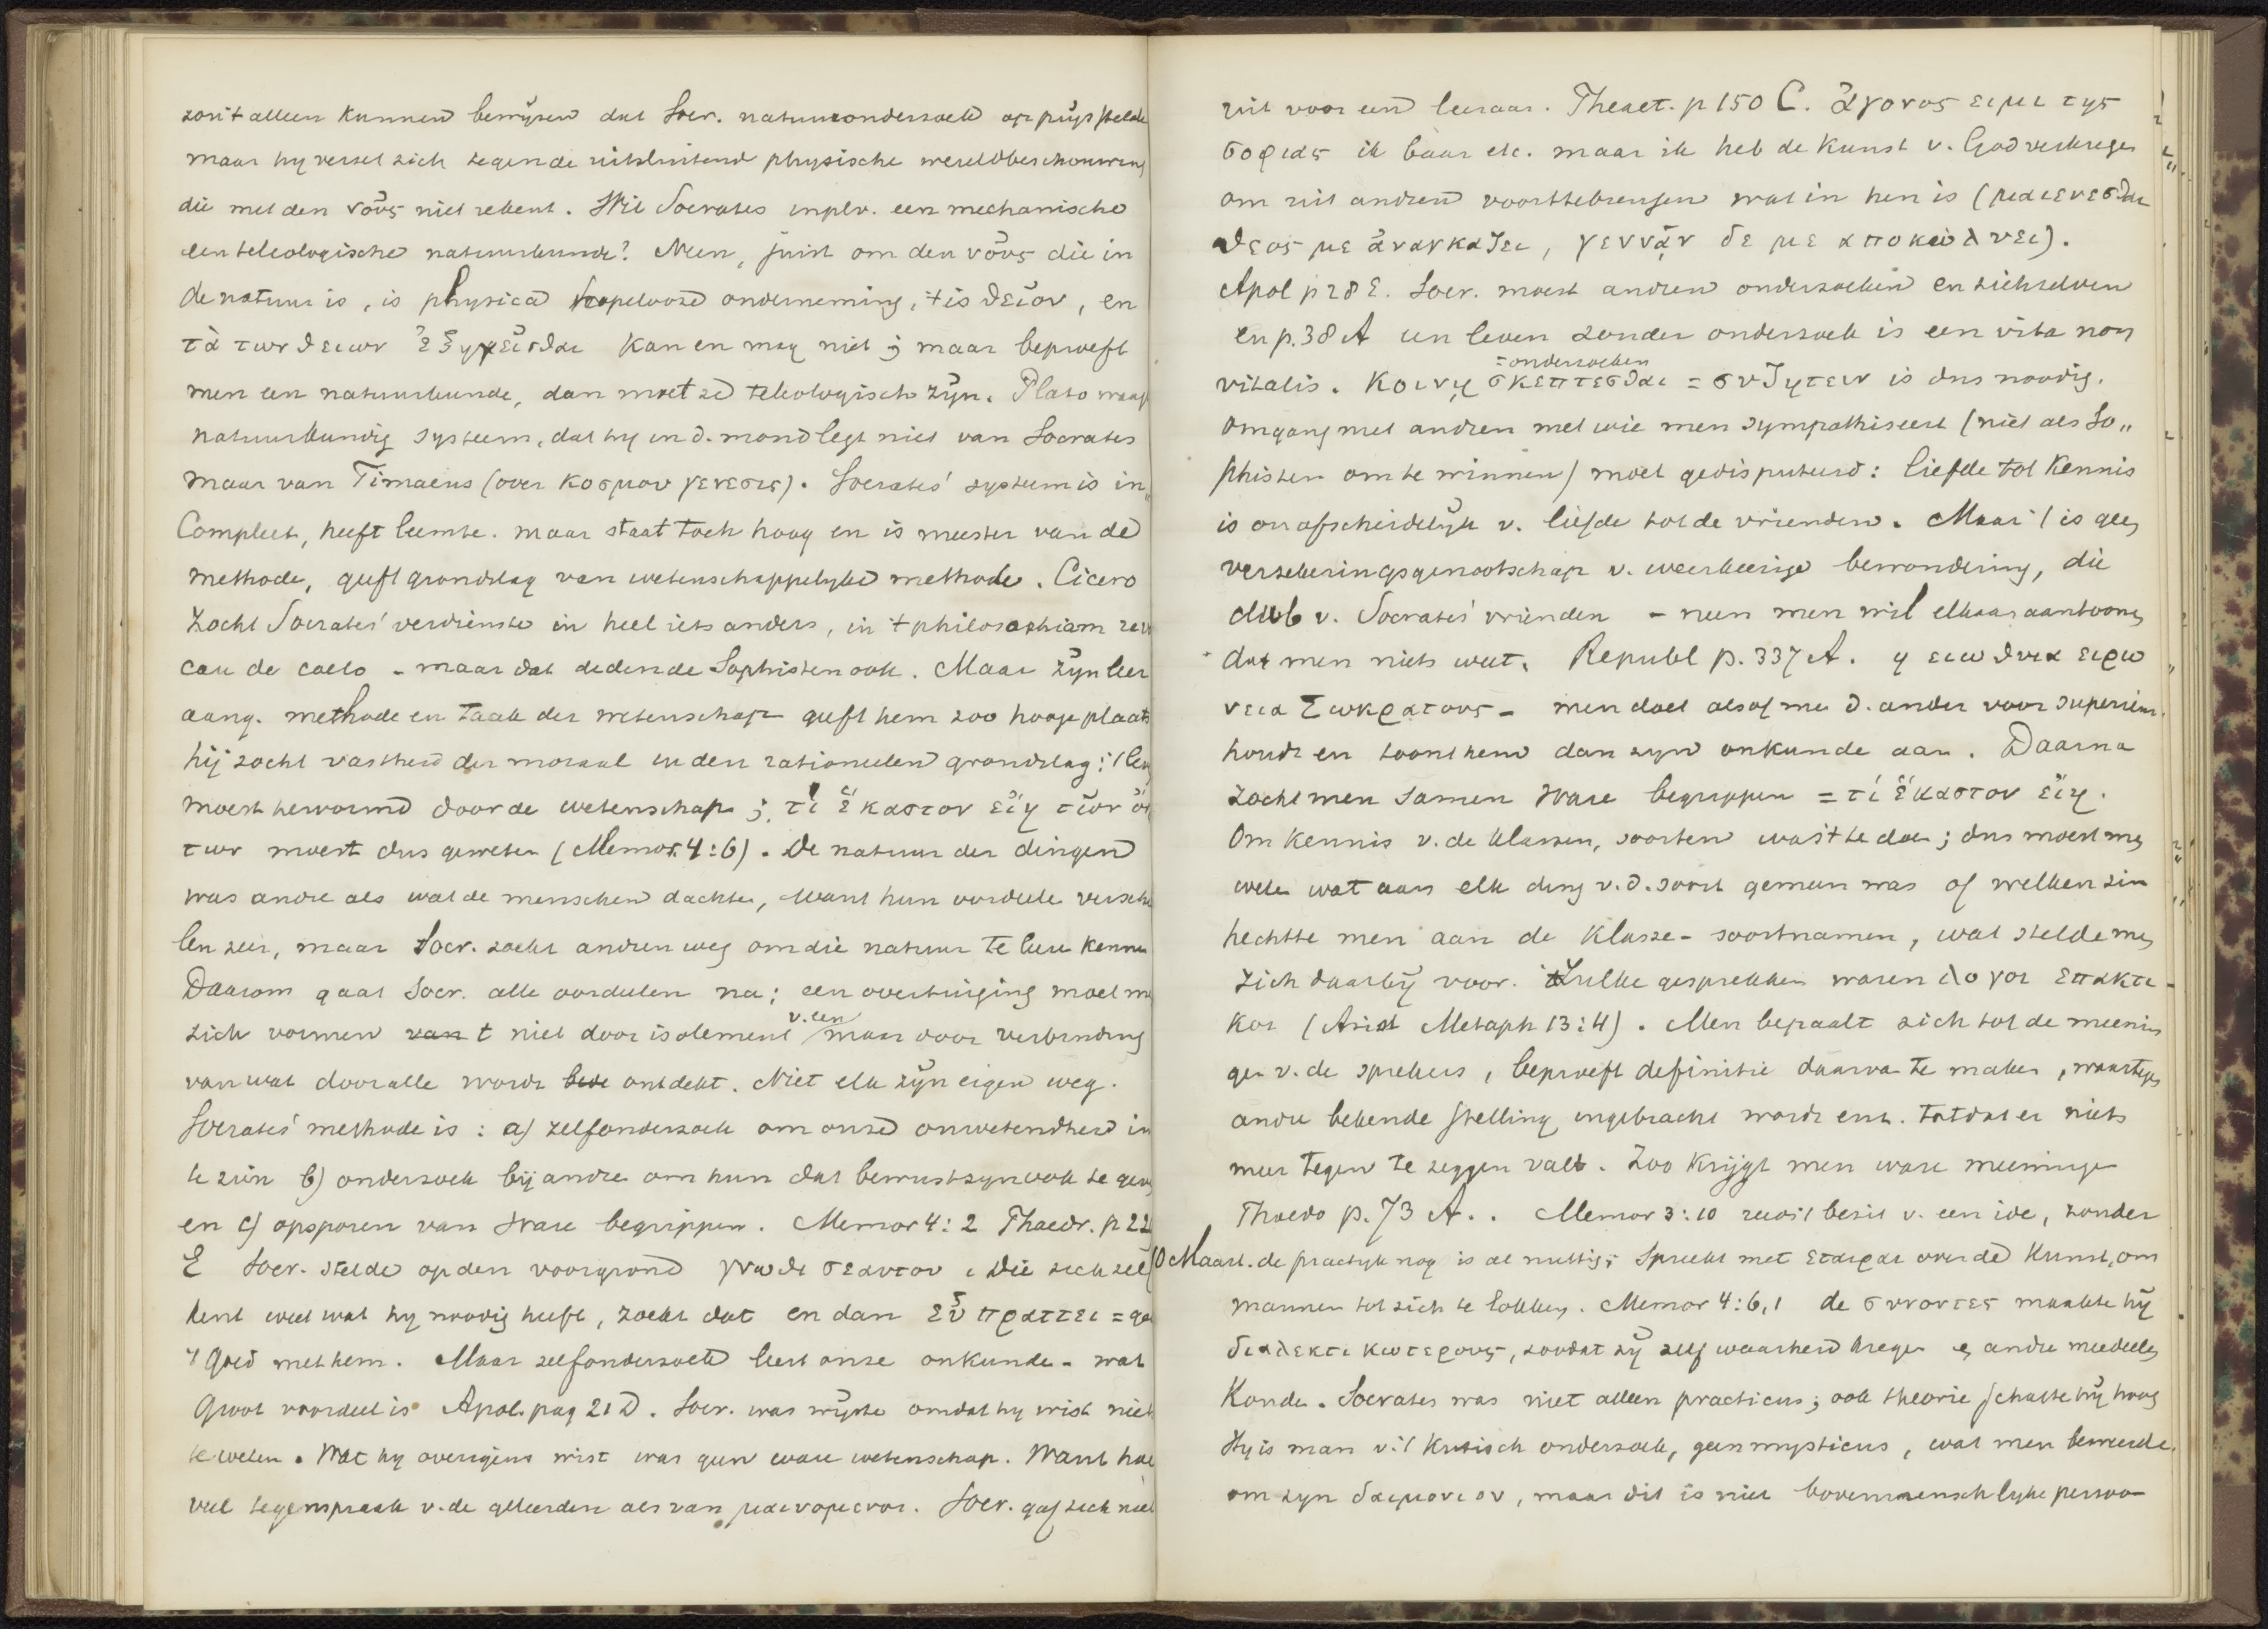 zou 't alleen kunnen bewijzen dat Socr. natuuronderzoek op prijs stelde
maar hy verzet zich tegen de uitsluitend physische wereldbeschouwing
die met den νοῦς niet rekent. Wil Socrates in plv. een mechanische
een teleologische natuurkunde? Neen, juist om den νοῦς die in
de natuur is, is physica hopelooze onderneming, 't is θεῖον, en
τὰ των θειων ἐξηγεῖσθαι kan en mag niet; maar beproeft
men een natuurkunde, dan moet ze teleologisch zijn. Plato waagt
natuurkundig systeem, dat hy in d. mond legt niet van Socrates
maar van Timaeus (over κοσμου γενεσις). Socrates' systeem is in„
Compleet, heeft leemte. maar staat toch hoog en is meester van de
methode, geeft grondslag van wetenschappelyke methode. Cicero
zocht Socrates' verdienste in heel iets anders, in 't philosophiam revo
care de caelo - maar dat deden de Sophisten ook. Maar zijn leer
aang. methode en taak der wetenschap geeft hem zoo hooge plaats
hij zocht vastheid der moraal in den rationeelen grondslag: 't leven
moest hervormd door de wetenschap; τί ἕκαστον εἴη των ὀν
των moest dus geweten (Memor. 4:6). De natuur der dingen
was andre als wat de menschen dachten, want hun oordeele verschil
len zeer, maar Socr. zocht andren weg om die natuur te leere kennen
Daarom gaat Socr. alle oordeelen na; een overtuiging moet men
zich vormen van t niet door isolement v. een maar door verbinding
van wat door alle wordt ontdekt. Niet elk zijn eigen weg.
Socrates' methode is: a) zelfonderzoek om onze onwetendheid in
te zien b) onderzoek bij andre om hun dat bewustzyn ook te geven
en c) opsporen van ware begrippen. Memor 4:2 Phaedr. p 22
E Socr. stelde op den voorgrond γνωθι σεαυτον. Die zich zelf
kent weet wat hy noodig heeft, zoekt dat en dan εὖ πραττει = gaat
't goed met hem. Maar zelfonderzoek leert onze onkunde - wat
Groot voordeel is Apol. pag 21 D. Socr. was wijste omdat hy wist niet
te weten. Wat hy overigens wist was geen ware wetenschap. Want hoe
veel tegenspraak v. de geleerden als van μαινομενοι. Socr. gaf zich niet
uit voor een leeraar. Theaet. p 150 C. ἄγονος ειμι της
σοφιας ik baar etc. maar ik heb de kunst v. God verkregen
om uit andren voorttebrengen wat in hen is (μαιευεσθαι
θεος με ἀναγκαζει, γεννᾶν δε με αποκωλυει).
Apol p 28 E. Socr. moest andren onderzoeken en zichzelven
en p. 38 A een leven zonder onderzoek is een vita non
= onderzoeken
vitalis. Κοινῃ σκεπτεσθαι = συζητειν is dus noodig.
Omgang met andren met wie men sympathiseert (niet als So„
phisten om te winnen) moet gedisputeerd: liefde tot kennis
is onafscheidelijk v. liefde tot de vrienden. Maar 't is geen
verzekeringsgenootschap v. weerkeerige bewondering, die
club v. Socrates' vrienden - neen men wil elkaar aantoonen
dat men niets weet. Republ p. 337 A. η ειωθυια ειρω
νεια Σωκρατους - men doet alsof men d. ander voor superieur
houdt en toont hem dan zyn onkunde aan. Daarna
zocht men samen ware begrippen = τί ἕκαστον εἴη.
Om kennis v. de klassen, soorten was 't te doen; dus moest men
weten wat aan elk ding v.d. soort gemeen was of welken zin
hechtte men aan de klasse- soortnamen, wat stelde men
zich daarbij voor. Zulke gesprekken waren λογοι επακτι-
κοι (Arist Metaph 13:4). Men bepaalt zich tot de meenin
gen v. de sprekers, beproeft definitie daarvan te maken, waartegen
andre bekende stelling ingebracht wordt enz. totdat er niets
meer tegen te zeggen valt. Zoo krijgt men ware meeningen
Phaedo p. 73 A.. Memor 3:10 reeds 't bezit v. een idee, zonder
10 Maart. de practijk nog is al nuttig; spreekt met εταιραι over de kunst, om
mannen tot zich te lokken. Memor 4:6,1 de συνοντες maakte hij
διαλεκτικωτερους, zoodat zij zelf waarheid kregen en andre meedeelen
Konde. Socrates was niet alleen practicus; ook theorie schatte hij hoog
Hy is man v. 't kritisch onderzoek, geen mysticus, wat men beweerde.
om zyn δαιμονιον, maar dit is niet bovenmenschlyke persoo-